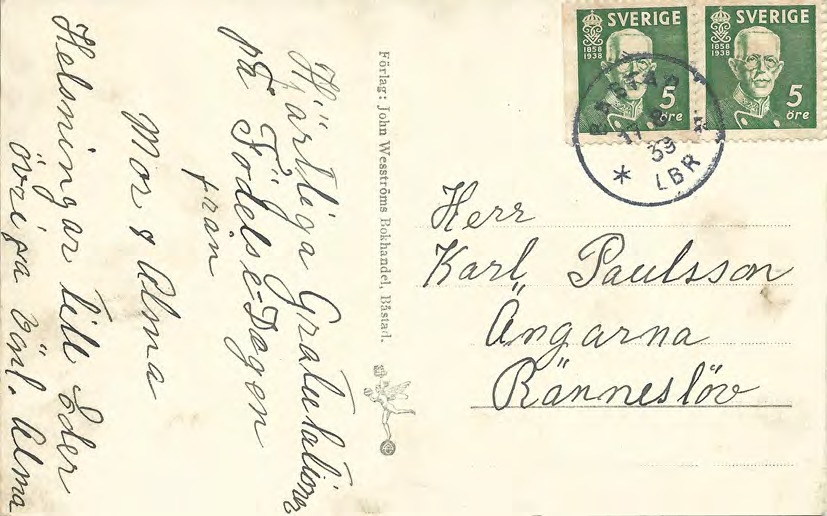 Hjärtliga Gratulationer
på Födelse-Dagen
från
Mor & Alma
Helsningar till Eder
övriga Vänl. Alma
Förlag: John Wesströms Bokhandel, Båstad.
SVERIGE
1858
1938
5
öre
SVERIGE
1858
1938
5
öre
BÅSTAD
39
LBR
Herr
Karl Paulsson
Ängarna
Ränneslöv